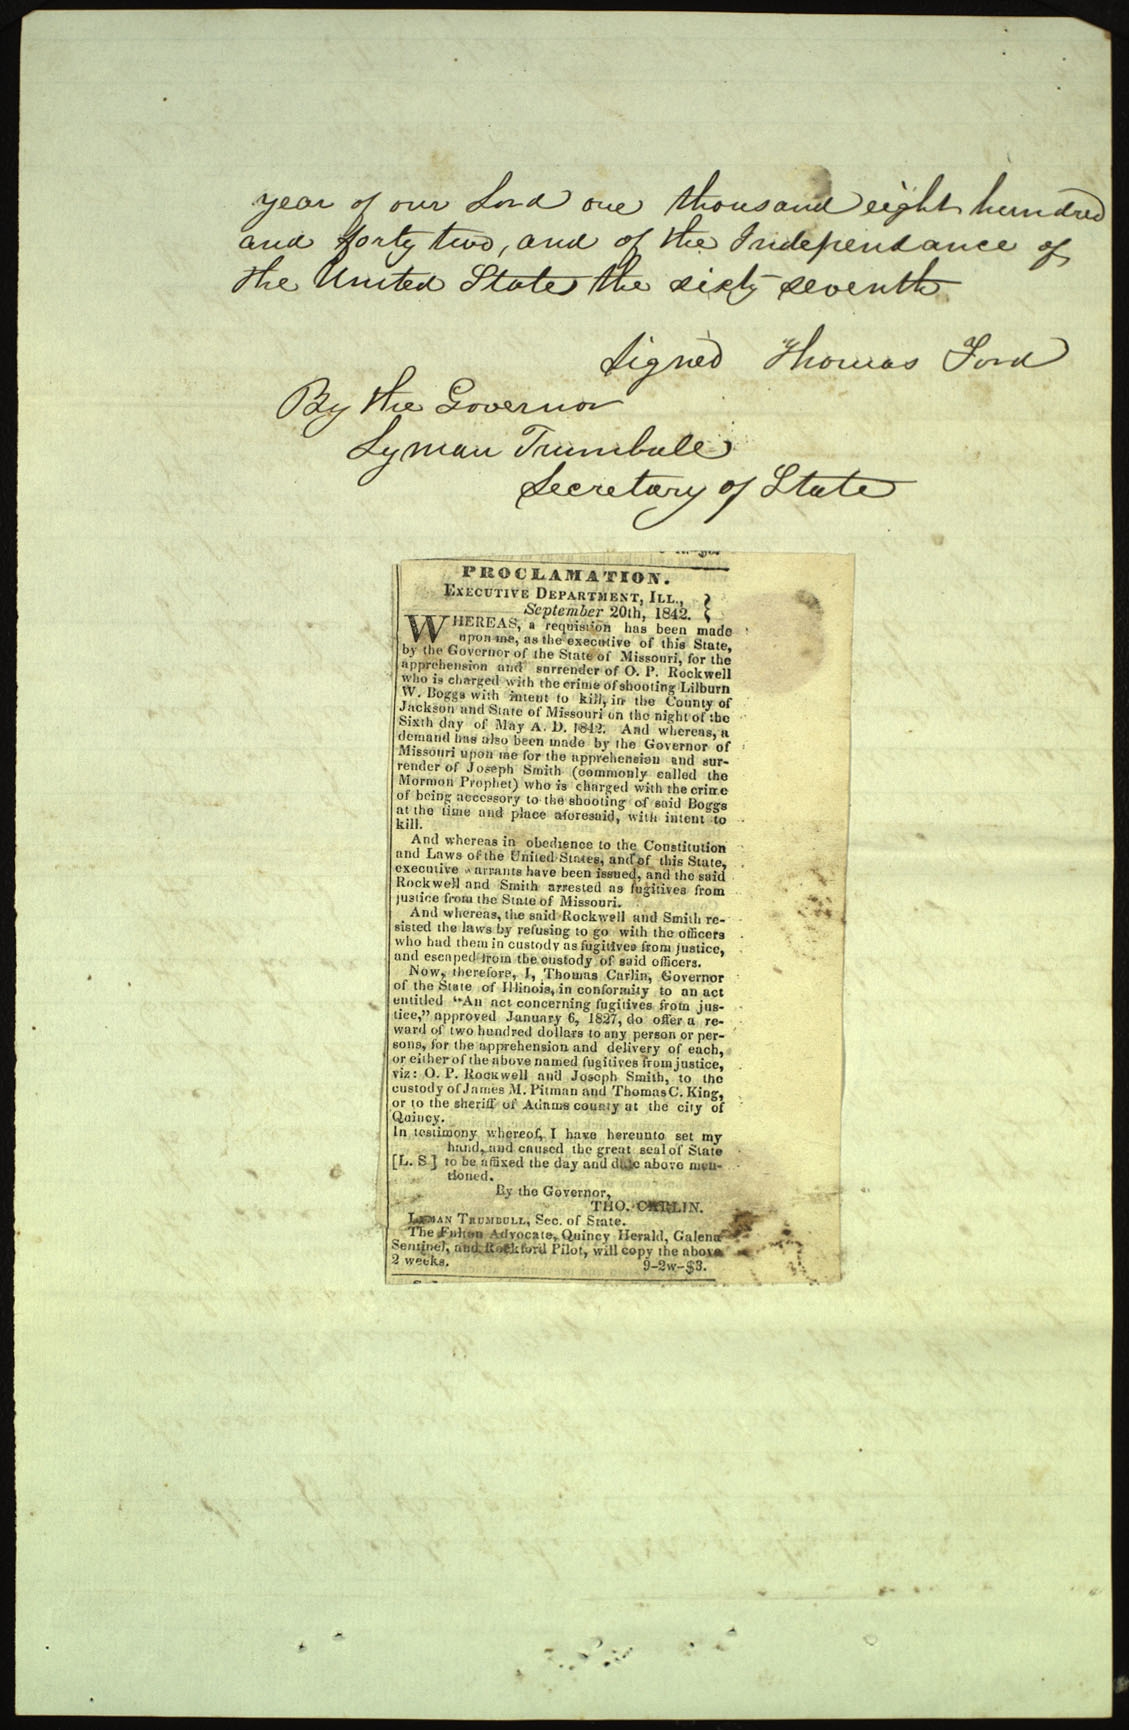 year of our Lord one thousand eight hundred
and forty two, and of the Independance of
the United States the sixty seventh
Signed Thomas Ford
By the Governor
Lyman Trumbull
Secretary of State
PROCLAMATION.
EXECUTIVE DEPARTMENT, ILL.,
September 20th, 1842.
WHEREAS, a requistion has been made
upon me, as the executive of this State,
by the Governor of the State of Missouri, for the
apprehension and surrender of O. P. Rockwell
who is charged with the crime of shooting Lilburn
W. Boggs with intent to kill, in the County of
Jackson and State of Missouri on the night of the
Sixth day of May A. D. 1842. And whereas, a
demand has also been made by the Governor of
Missouri upon me for the apprehension and sur-
render of Joseph Smith (commonly called the
Mormon Prophet) who is charged with the crime
of being accessory to the shooting of said Boggs
at the time and place aforesaid, with intent to
kill.
And whereas in obedience to the Constitution
and Laws of the United States, and of this State,
executive warrants have been issued, and the said
Rockwell and Smith arrested as fugitives from
justice from the State of Missouri.
And whereas, the said Rockwell and Smith re-
sisted the laws by refusing to go with the officers
who had them in custody as fugitives from justice,
and escaped from the custody of said officers.
Now, therefore, I, Thomas Carlin, Governor
of the State of Illinois, in conformity to an act
entitled "An act concerning fugitives from jus-
tice," approved January 6, 1827, do offer a re-
ward of two hundred dollars to any person or per-
sons, for the apprehension and delivery of each,
or either of the above named fugitives from justice,
viz: O. P. Rockwell and Joseph Smith, to the
custody of James M. Pitman and Thomas C. King,
or to the sheriff of Adams county at the city of
Quincy.
In testimony whereof, I have hereunto set my
hand, and caused the great seal of State
[L. S.] to be affixed the day and date above men-
tioned.
By the Governor,
THO. CARLIN.
LYMAN TRUMBULL, Sec. of State.
The Fulton Advocate, Quincy Herald, Galena
Sentinel, and Rockford Pilot, will copy the above
2 weeks. 9-2w-$3.